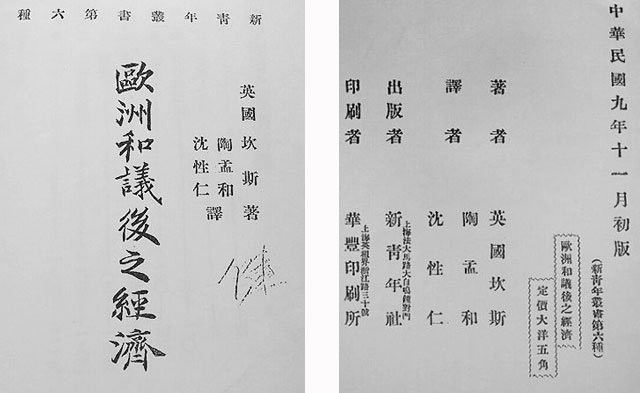 新青年叢書第六種
英國坎斯著
陶孟和
沈性仁
譯
歐洲和議後之經濟
中華民國九年十一月初版
(新青年叢書第六種)
歐洲和議後之經濟
定價大洋五角
著者 英國坎斯
譯者 陶孟和
沈性仁
出版者 新青年社
上海法大馬路大自鳴鐘對門
印刷者 華豐印刷所